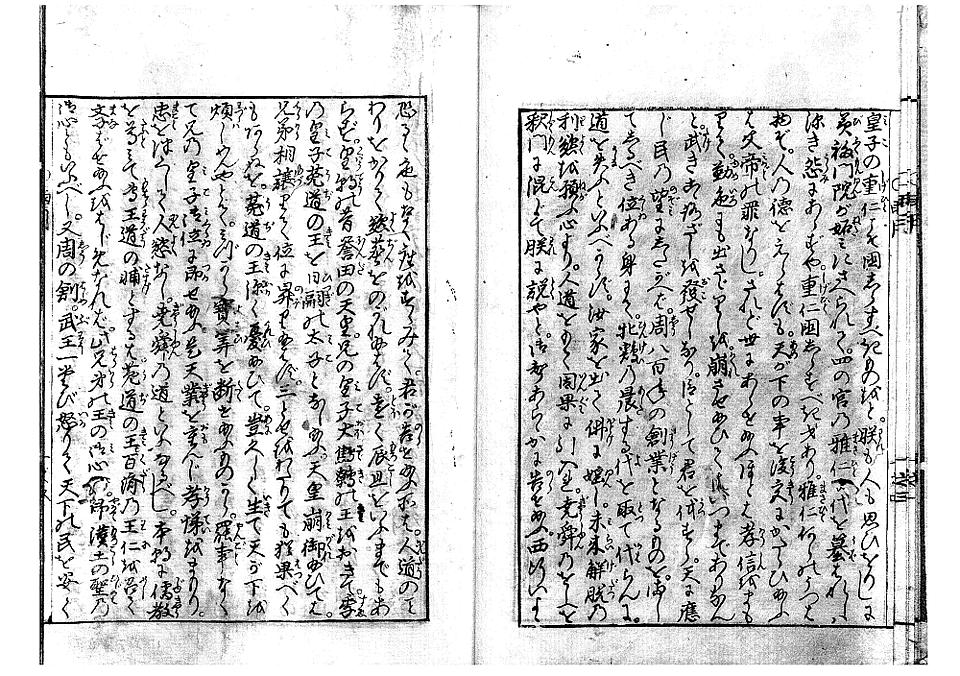 皇子の重仁こそ國しらすべきものをと。朕も人も思ひをりしに
美福門院が妬みにさへられて。四の宮の雅仁に代を簒はれしは
深き怨にあらずや。重仁國しらすべき才あり。雅仁何らのうつは
物ぞ。人の徳をえらはずも。天が下の事を後宮にかたらひ給ふ
は父帝の罪なりし。されど世にあらせ給ふほどは孝信をまも
りて。勤色にも出さざりしを崩させ給ひてはいつまでありなん
と。武きこゝろざしを發せしなり。臣として君を伐すら。天に應
じ民の望にしたがへば。周八百年の創業となるものを。まし
てしるべき位ある身にて。牝鶏の晨する代を取て代らんに。
道を失ふといふべからず。汝家を出て佛に婬し。未来解脱の
利慾を願ふ心より。人道をもて因果に引入れ。堯舜のをしへを
釋門に混じて朕に説やと。御聲あらゝかに告せ給ふ。西行いよ
恐るゝ色もなく座をすゝみて。君が告せ給ふ所は。人道のこと
わりをかりて慾塵をのがれ給はず。遠く辰旦をいふまでもあ
らず。皇朝の昔誉田の天皇。兄の皇子大鷦鷯の王をおきて。季
の皇子菟道の王を日嗣の太子となし給ふ。天皇崩御給ひては。
兄弟相譲りて位に昇り給はず。三とせをわたりても猶果つべく
もあらぬを。菟道の王深く憂給ひて。豈久しく生て天が下を
煩しめんやとて。みづから寶算を断せ給ふものから。罷事なく
て兄の皇子御位に即せ給ふ。是天業を重んじ孝悌をまもり。
忠をつくして人慾なし。堯舜の道といふなるべし。本朝に儒教
を尊みて専王道の輔とするは。菟道の王百済の王仁を召て
学ばせ給ふをはじめなれば。此兄弟の王の御心ぞ。即漢土の聖の
御心ともいふべし。又周の創。武王一たび怒りて天下の民を安く